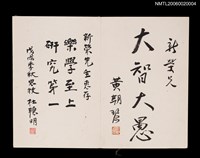 NMTL20060020004
新榮兄
大智大愚
黃朝琴
新榮先生惠存
樂學至上
研究第一
杜聰明